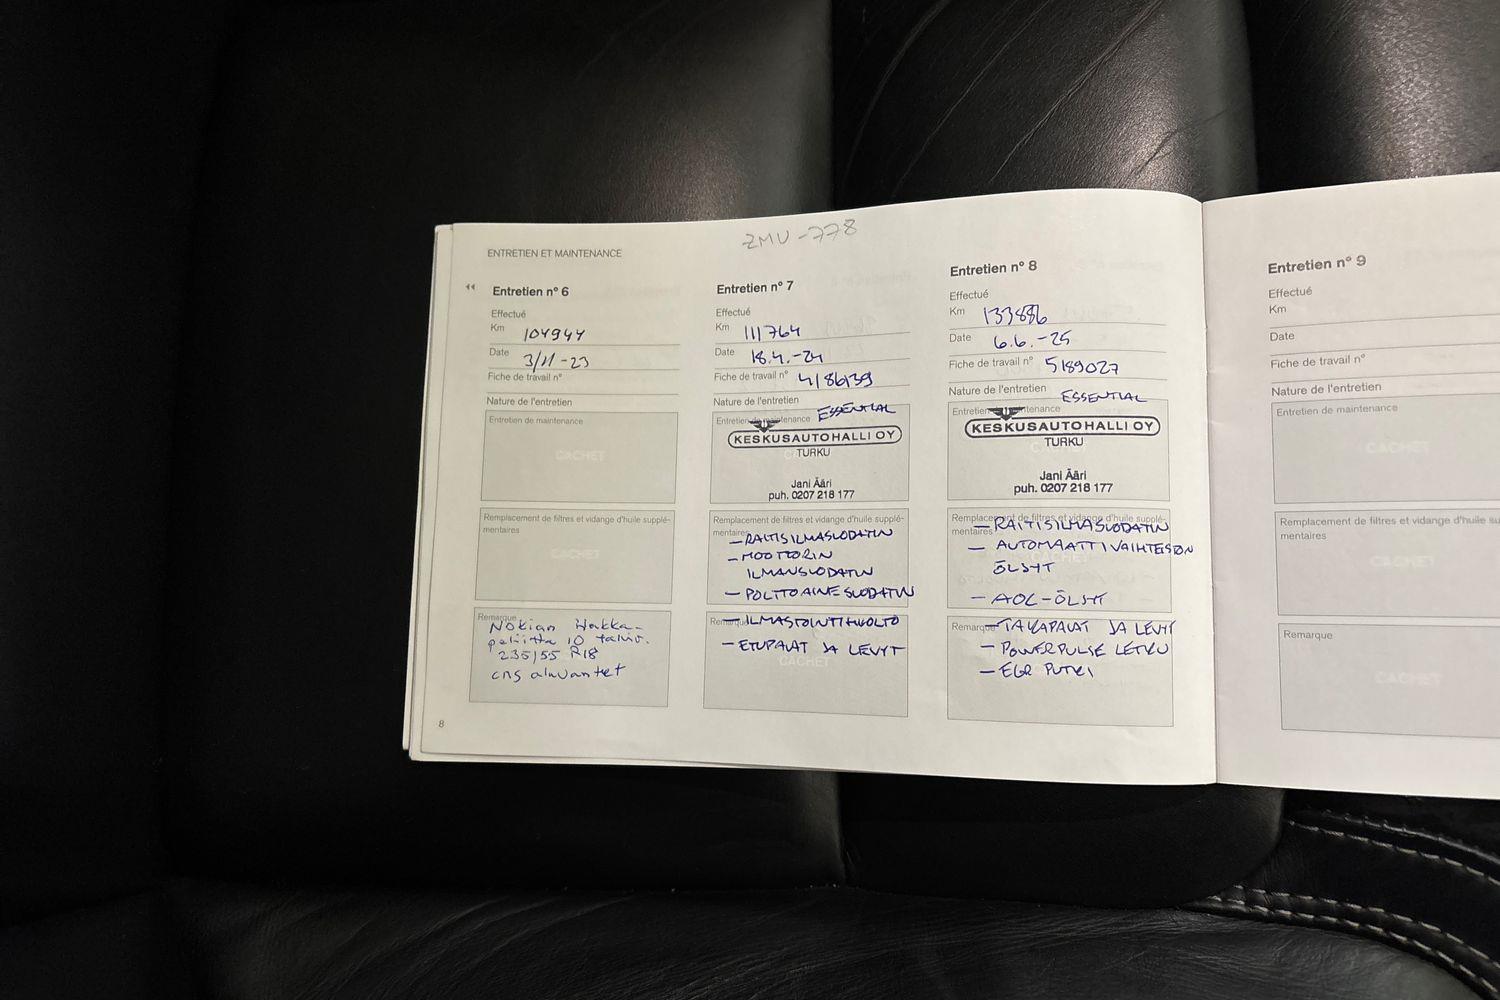 ZMU-778
ENTRETIEN ET MAINTENANCE
Entretien n° 6
Effectué
Km 104944
Date 3/11-23
Fiche de travail n°
Nature de l'entretien
Entretien de maintenance
CACHET
Remplacement de filtres et vidange d'huile supplé-
mentaires
CACHET
Remarque
Nokian Hakka-
peliitta 10 talvir.
235/55 R18
cns alavantet
8
Entretien n° 7
Effectué
Km 111764
Date 18.4.-24
Fiche de travail n° 4186139
Nature de l'entretien
ESSENTIAL
Entretien de maintenance
KESKUSAUTOHALLI OY
TURKU
Jani Ääri
puh. 0207 218 177
Remplacement de filtres et vidange d'huile supplé-
mentaires
- RAITISILMASUODATIN
- MOOTTORIN
ILMANSUODATIN
- POLTTOAINESUODATIN
Remarque
- ILMASTOINTIHUOLTO
- ETUPALAT JA LEVYT
CACHET
Entretien n° 8
Effectué
Km 133886
Date 6.6.-25
Fiche de travail n° 5189027
Nature de l'entretien
ESSENTIAL
Entretien de maintenance
KESKUSAUTOHALLI OY
TURKU
Jani Ääri
puh. 0207 218 177
Remplacement de filtres et vidange d'huile supplé-
mentaires
- RAITISILMASUODATIN
- AUTOMAATTIVAIHTEISTON
ÖLJYT
- AOC-ÖLJYT
Remarque
- TAKAPALAT JA LEVYT
- POWERPULSE LETKU
- EGR PUTKI
Entretien n° 9
Effectué
Km
Date
Fiche de travail n°
Nature de l'entretien
Entretien de maintenance
CACHET
Remplacement de filtres et vidange d'huile su
mentaires
CACHET
Remarque
CACHET